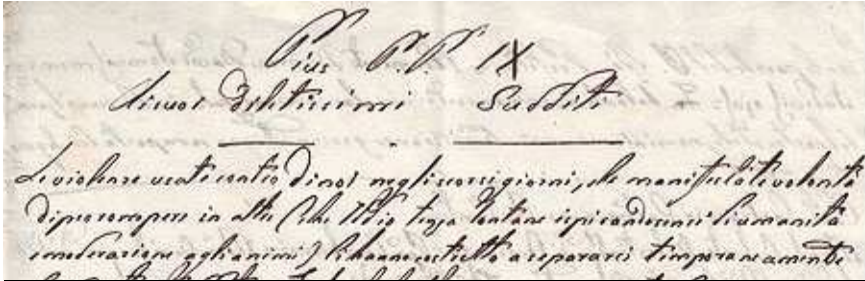 Pius P.P. IX
Ai suoi dilettissimi Sudditi
Le violenze usate contro di noi negli scorsi giorni, e le manifestate volontà
di prorompere in altre (che Iddio tenga lontane ispirando sensi d'umanità
e moderazione agli animi) ci hanno costretto a separarci temporaneamente